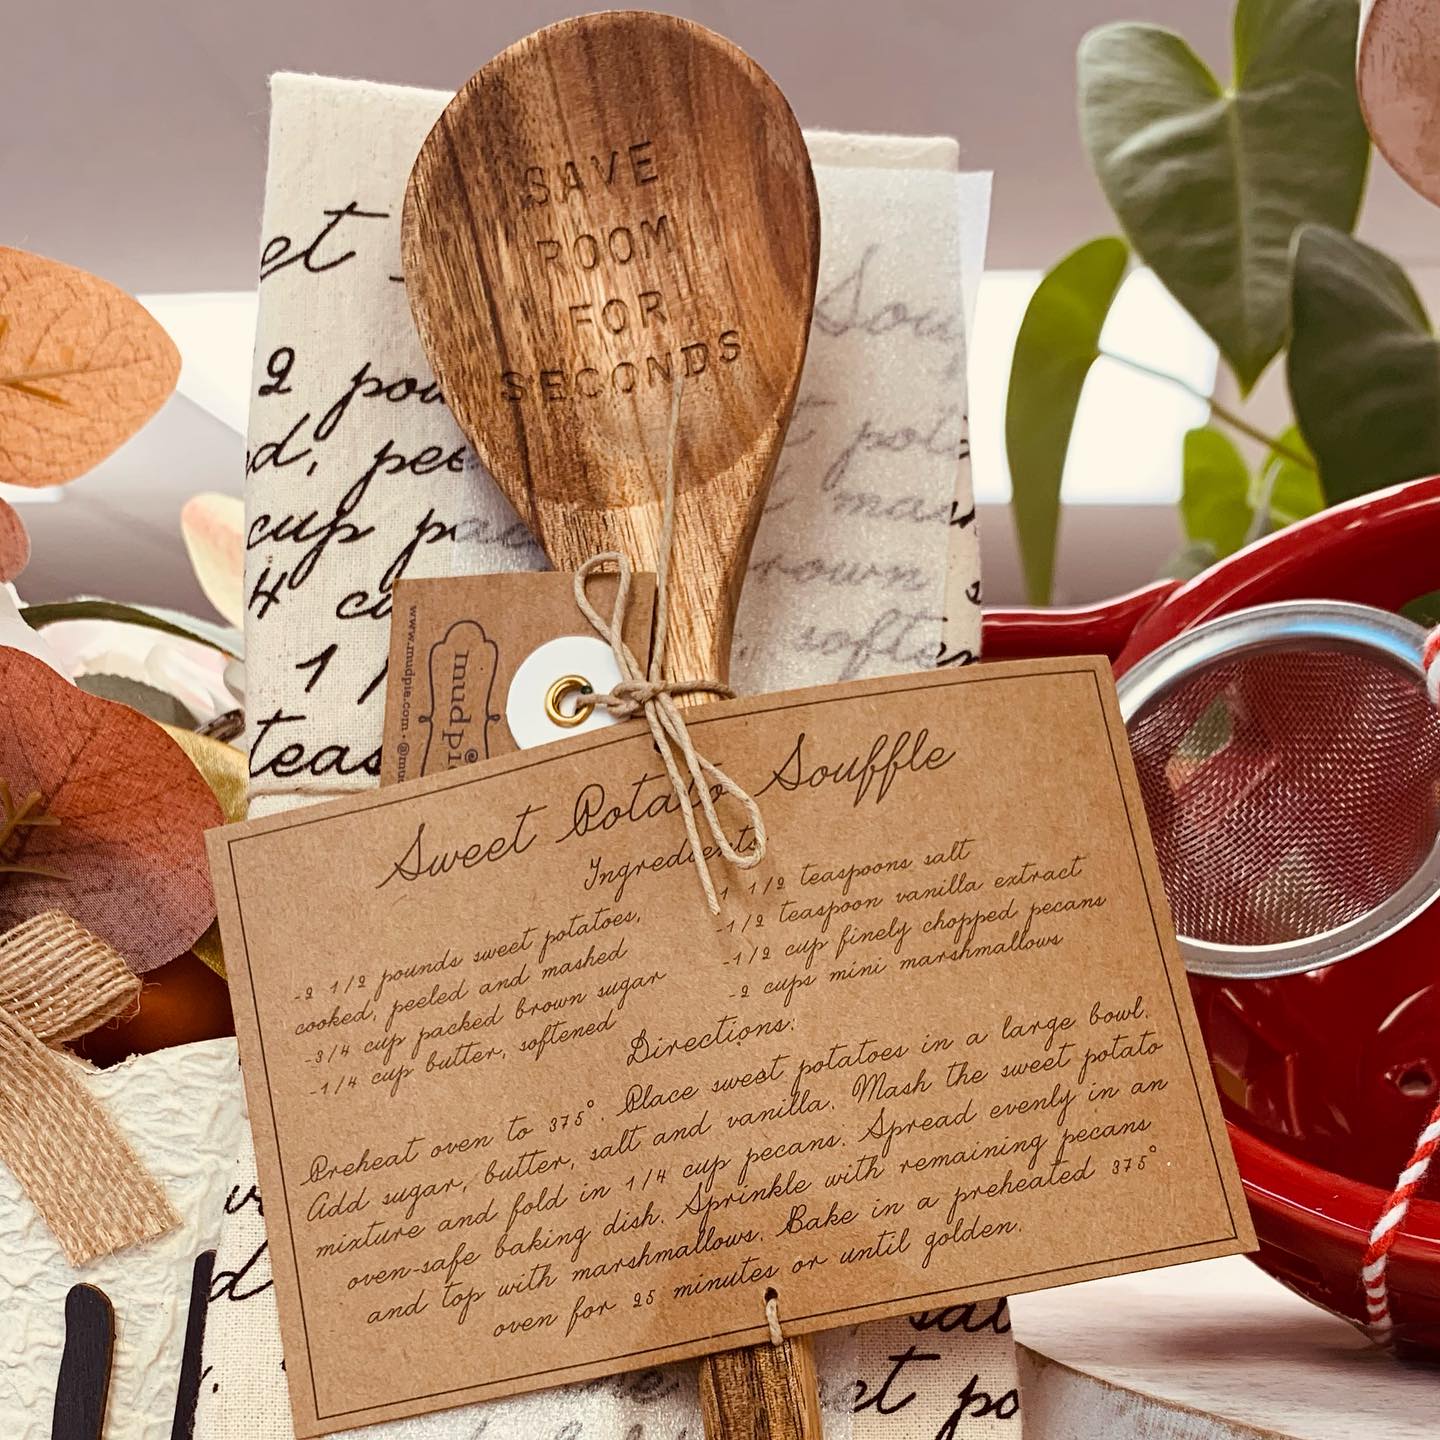 SAVE
ROOM
FOR
SECONDS
et
2 pou
d, pee
cup pac
/4 cu
1 /
teas
Sou
t pot
mas
rown
, softe
www.mudpie.com • @mu
mudpie
Sweet Potato Souffle
Ingredients
-2 1/2 pounds sweet potatoes,
cooked, peeled and mashed
-3/4 cup packed brown sugar
-1/4 cup butter, softened
-1 1/2 teaspoons salt
-1/2 teaspoon vanilla extract
-1/2 cup finely chopped pecans
-2 cups mini marshmallows
Directions:
Preheat oven to 375°. Place sweet potatoes in a large bowl.
Add sugar, butter, salt and vanilla. Mash the sweet potato
mixture and fold in 1/4 cup pecans. Spread evenly in an
oven-safe baking dish. Sprinkle with remaining pecans
and top with marshmallows. Bake in a preheated 375°
oven for 25 minutes or until golden.
d
sal
et po